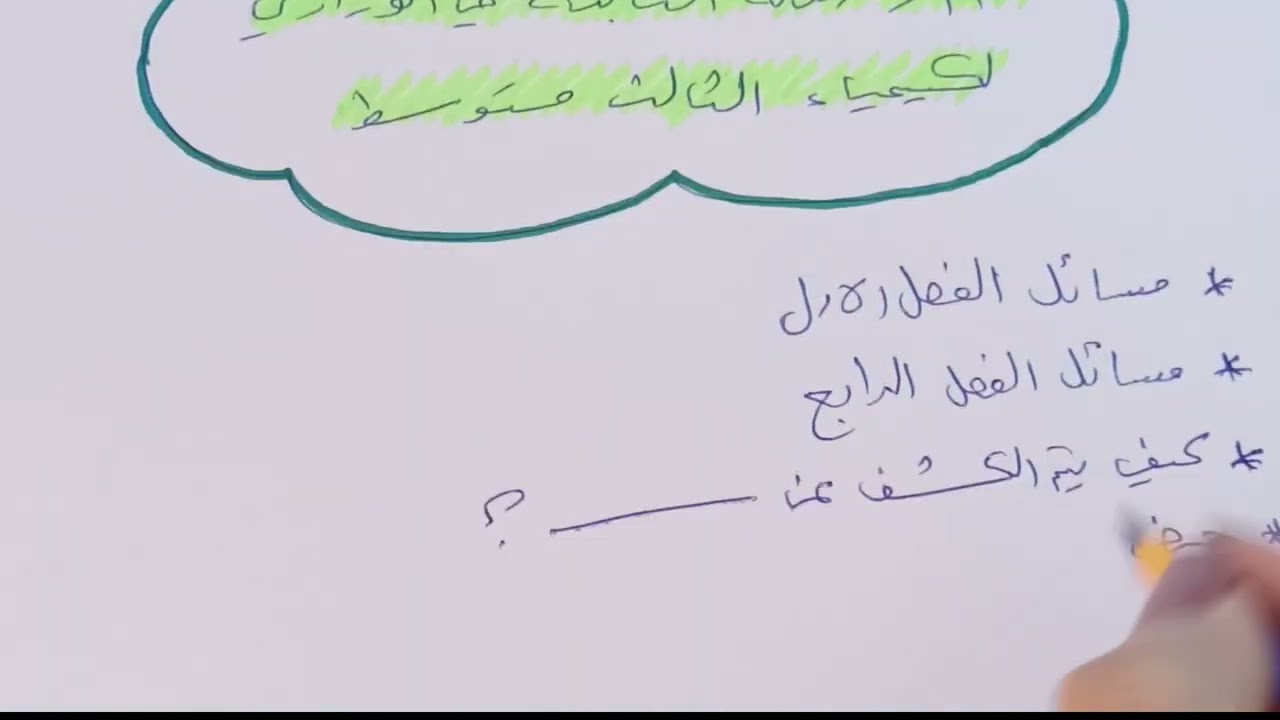 لكيمياء الثالث متوسط
* مسائل الفصل الاول
* مسائل الفصل الرابع
* كيف يتم الكشف عن ـــــــــ ؟
*